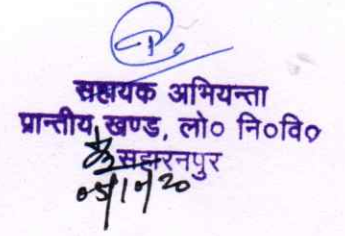 सहायक अभियन्ता
प्रान्तीय खण्ड, लो० नि०वि०
सहारनपुर